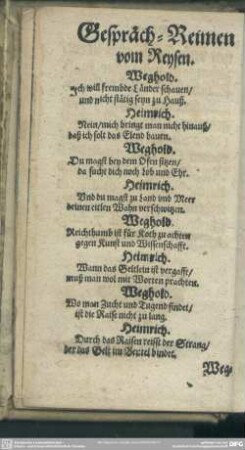 Gespräch-Reimen
vom Reysen.
Weghold.
Ich will frembde Länder schauen/
und nicht stätig seyn zu Hauß.
Heinrich.
Nein/mich bringt man nicht hinauß/
daß ich solt das Elend bauen.
Weghold.
Du magst bey dem Ofen sitzen/
da sucht dich noch Lob und Ehr.
Heinrich.
Und du magst zu Land und Meer
deinen eitlen Wahn verschwitzen.
Weghold.
Reichthumb ist für Koth zu achten
gegen Kunst und Wissenschafft.
Heinrich.
Wann das Geltlein ist vergafft/
muß man wol mit Worten prachten.
Weghold.
Wo man Zucht und Tugend findet/
ist die Raise nicht zu lang.
Heinrich.
Durch das Raisen reisst der Strang/
der das Gelt im Beutel bindet.
Weg-